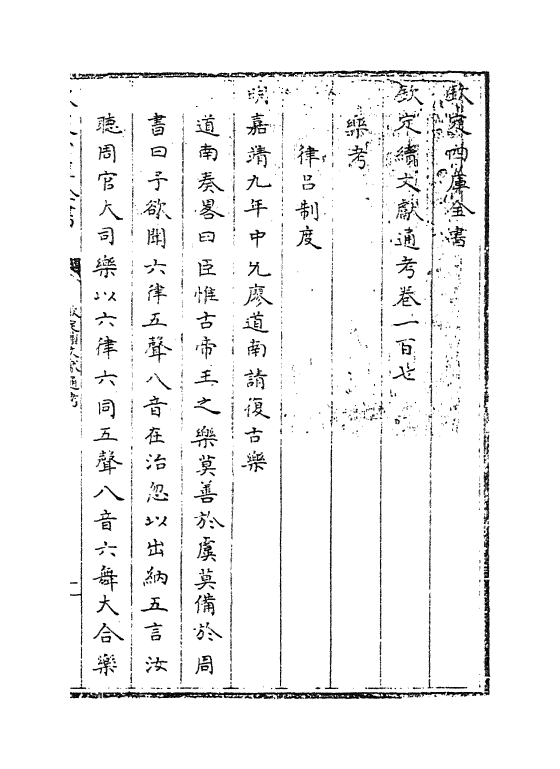 欽定四庫全書
欽定續文獻通考卷一百七
樂考
律呂制度
明嘉靖九年中允廖道南請復古樂
道南奏畧曰臣惟古帝王之樂莫善於虞莫備於周
書曰予欲聞六律五聲八音在治忽以出納五言汝
聽周官大司樂以六律六同五聲八音六舞大合樂
欽定續文獻通考